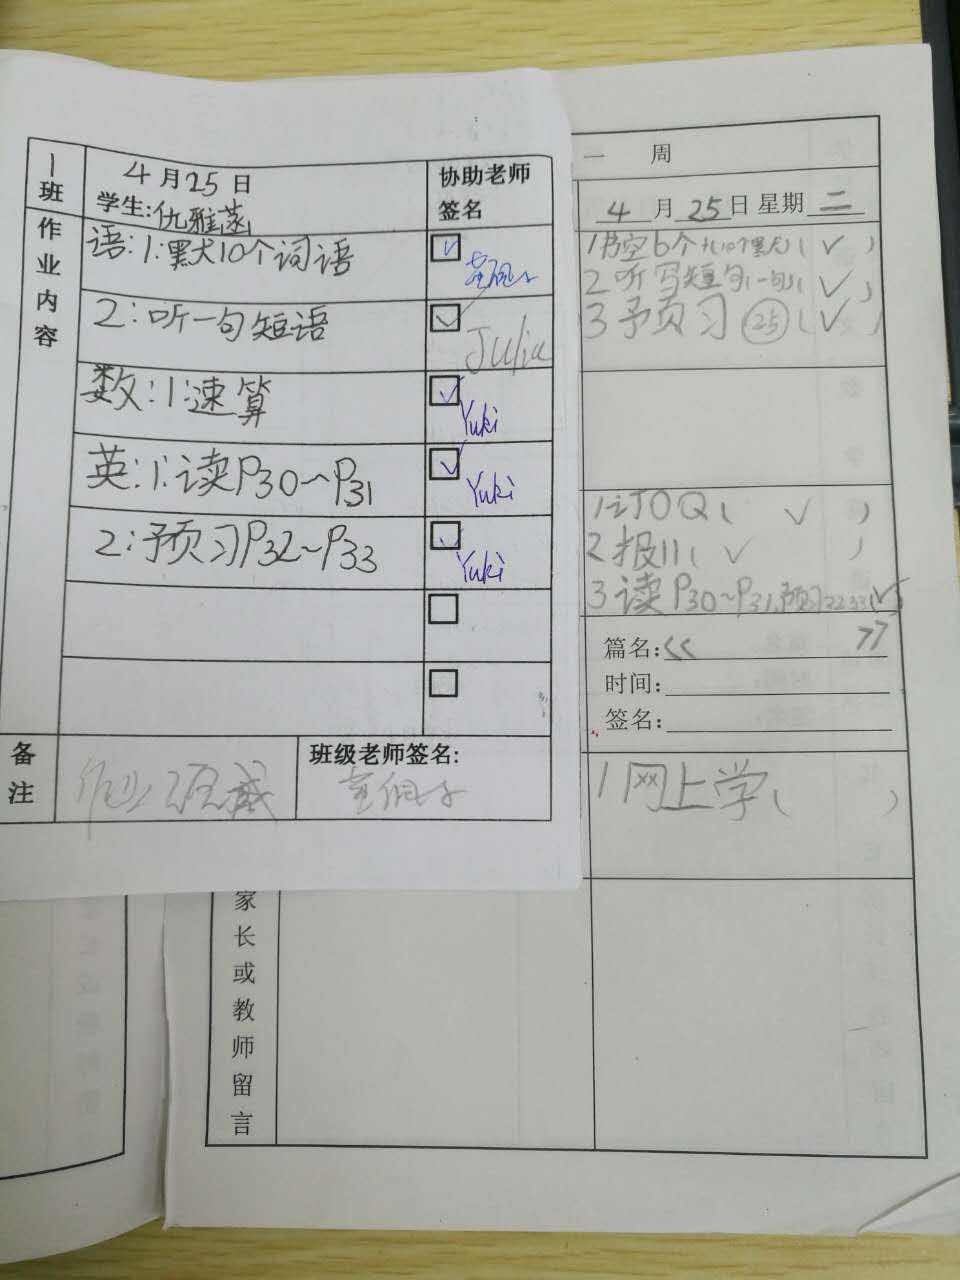 一班
4月25日
学生:优雅菡
协助老师
签名
作业内容
语:1:默大10个词语
2:听一句短语
Julia
数:1:速算
Yuki
英:1:读P30~P31
Yuki
2:预习P32~P33
Yuki
备注
班级老师签名:
一 周
4月25日 星期二
2听写短句(一句)(✓)
3预习㉕(✓)
1订OQ(✓)
2报11(✓)
3读P30~P31,预习32 33(✓)
篇名:《 》
时间:
签名:
1网上学( )
家长或教师留言